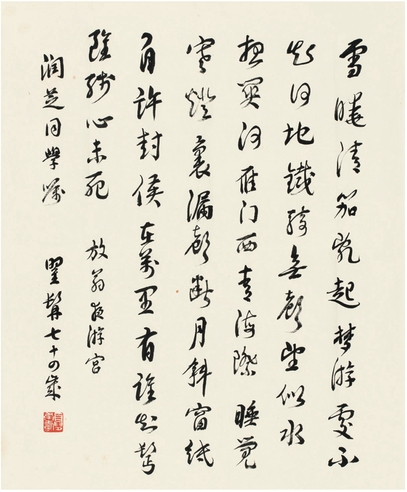 雪曉清笳亂起夢游處不
知何地鐵騎無聲望似水
想關河雁門西青海際睡覺
寒燈裏漏聲斷月斜窗紙
自許封侯在萬里有誰知鬢
雖殘心未死 放翁夜游宮
润芝同學嘱 瞿髯七十四歲